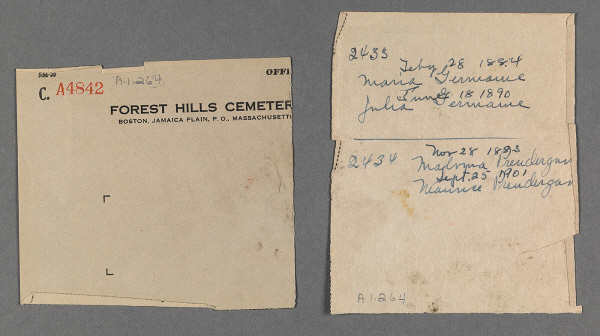 53A-39
OFFI
C. A4842
A.1.264
FOREST HILLS CEMETER
BOSTON, JAMAICA PLAIN, P. O., MASSACHUSETT
2433
Feby 28 1884
Maria Germaine
June 18 1890
Julia Germaine
2434
Nov 28 1883
Malvina Prendergas
Sept. 25 1901
Maurice Prendergas
A.1.264